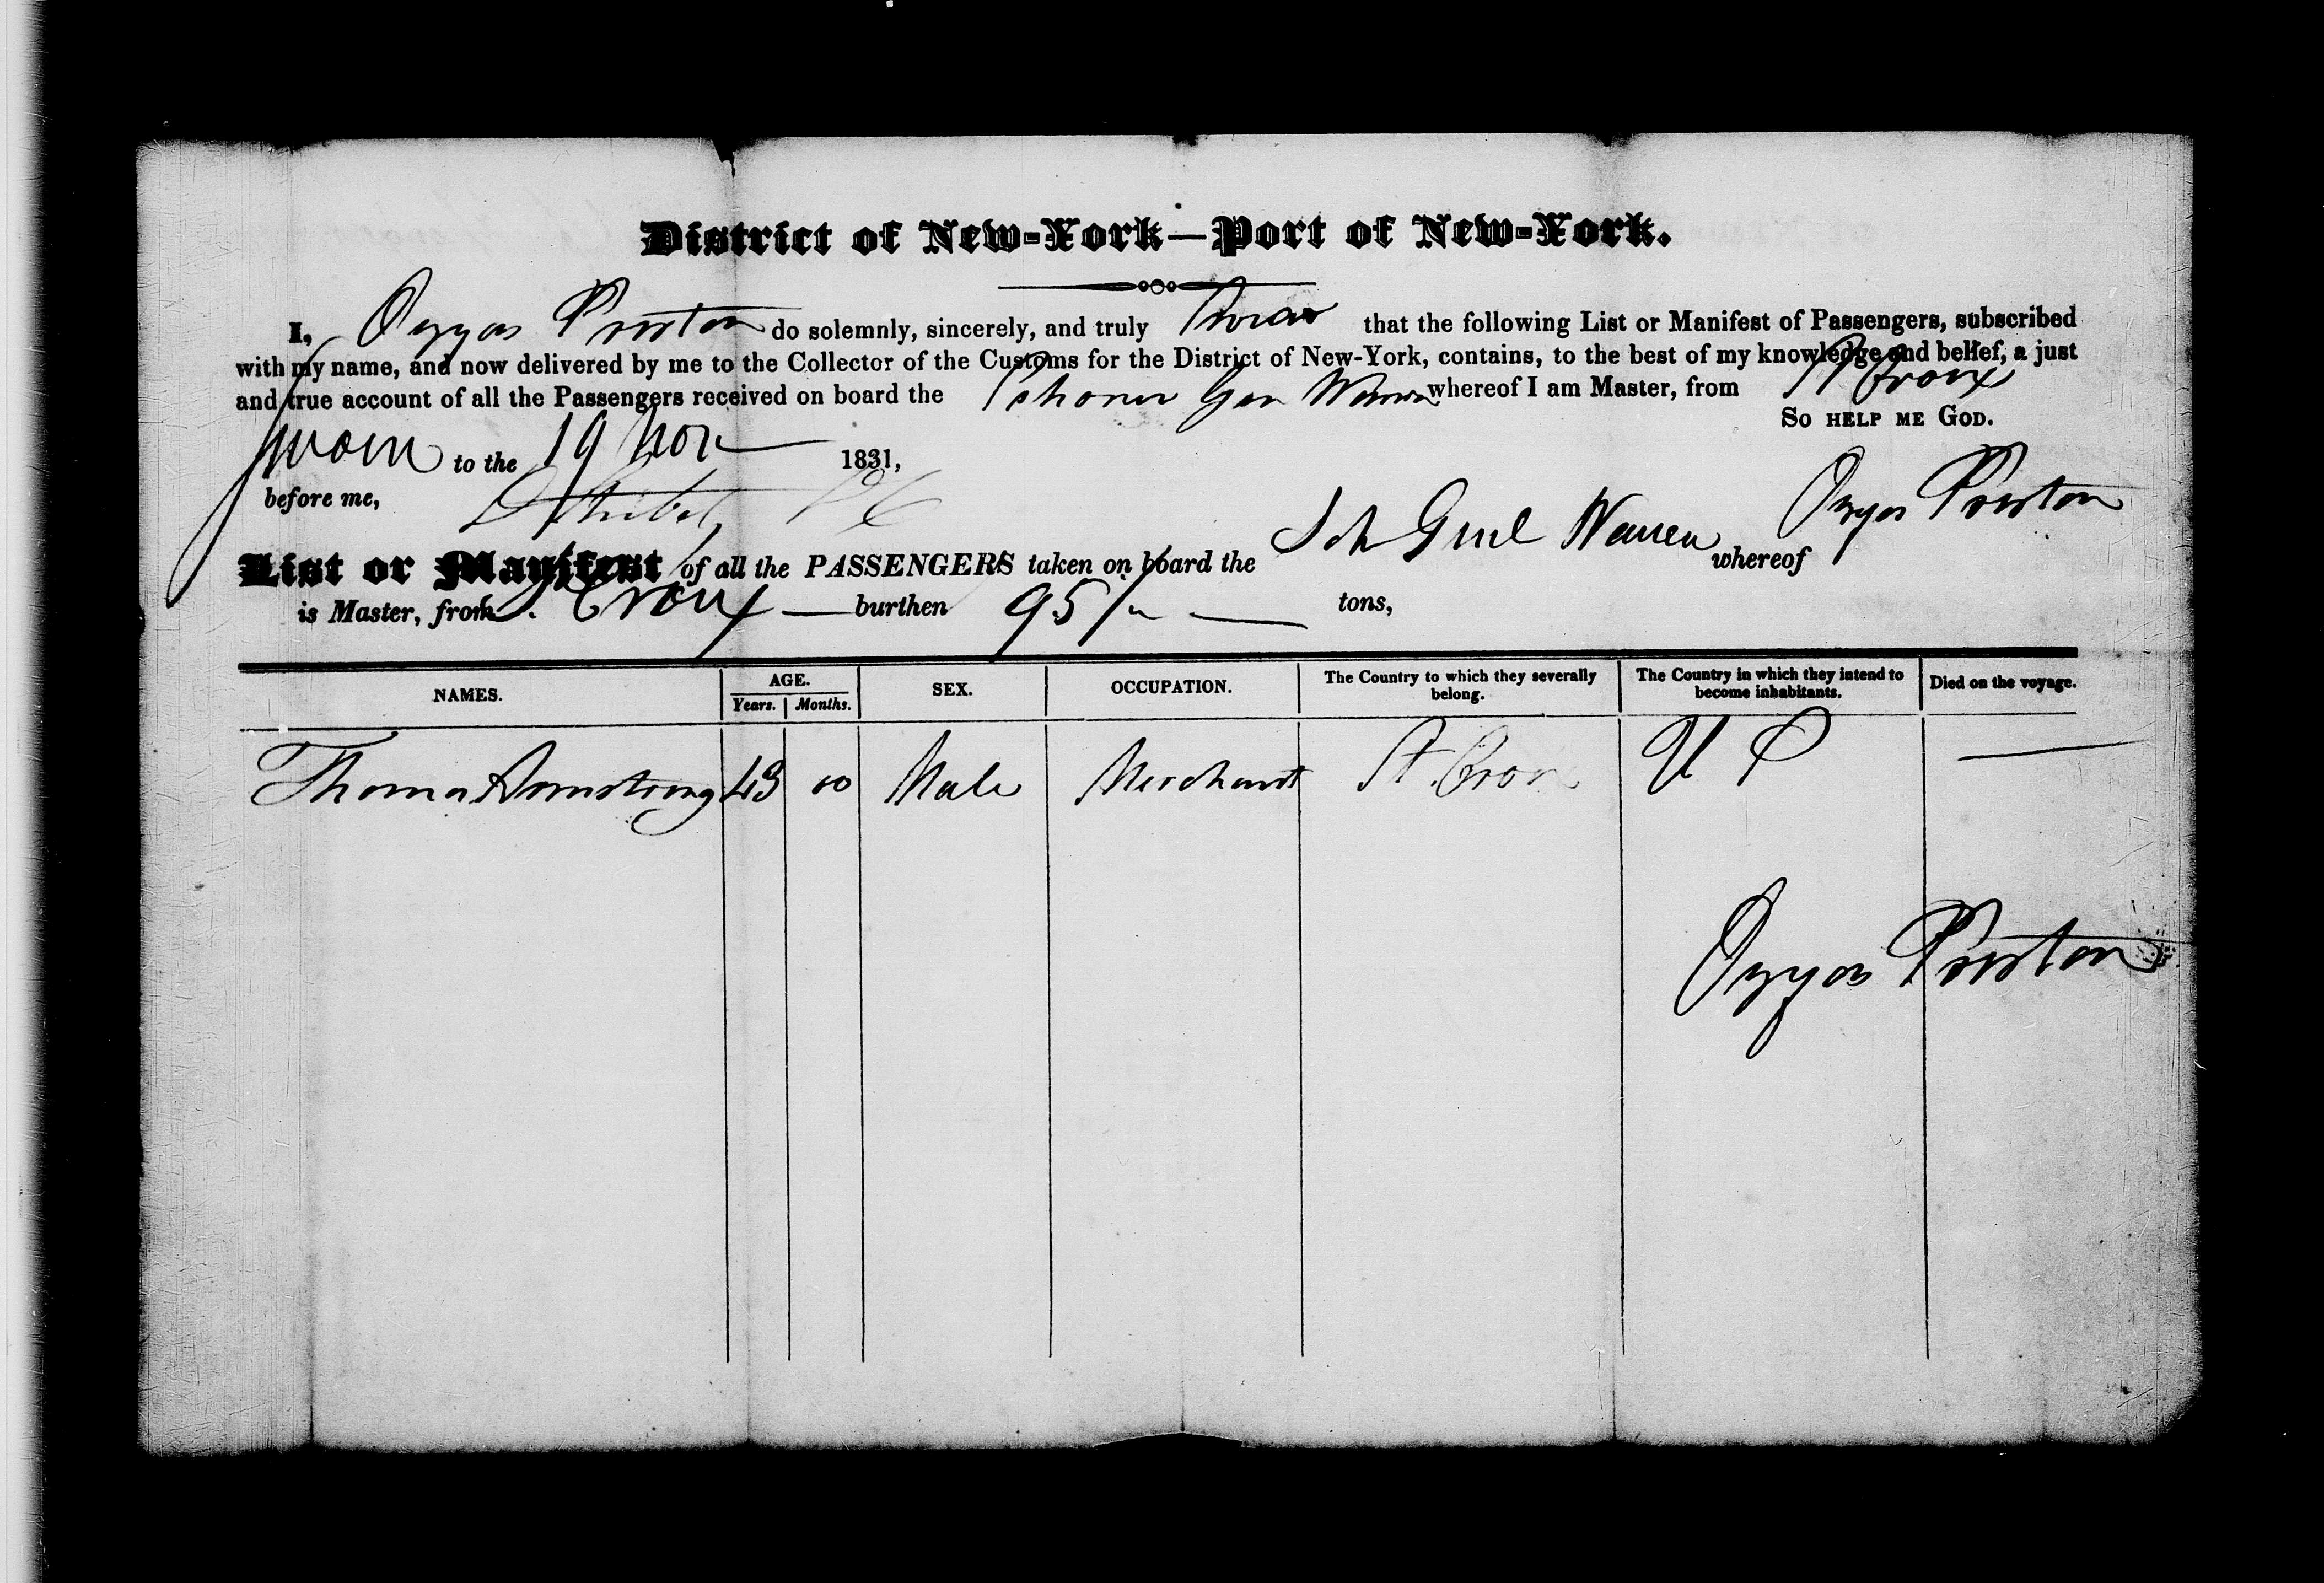 District of New-York—Port of New-York.
I, Ozyas Preston do solemnly, sincerely, and truly Swear that the following List or Manifest of Passengers, subscribed
with my name, and now delivered by me to the Collector of the Customs for the District of New-York, contains, to the best of my knowledge and belief, a just
and true account of all the Passengers received on board the Schoner Gen Warren whereof I am Master, from St Croix
So help me God.
Sworn to the 19 Nov 1831,
before me,
Ozyas Preston
List or Manifest of all the PASSENGERS taken on board the Sch Genl Warren whereof
is Master, from St. Croix — burthen 95 tons,
NAMES. AGE. Years. Months. SEX. OCCUPATION. The Country to which they severally belong. The Country in which they intend to become inhabitants. Died on the voyage.
Thomas Armstrong 43 00 Male Merchant St. Croix U S —
Ozyas Preston